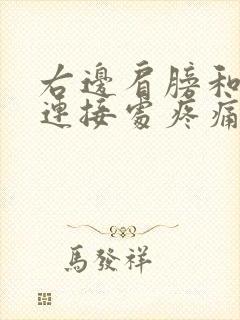 右邊肩膀和
連接處疼痛
馬發祥